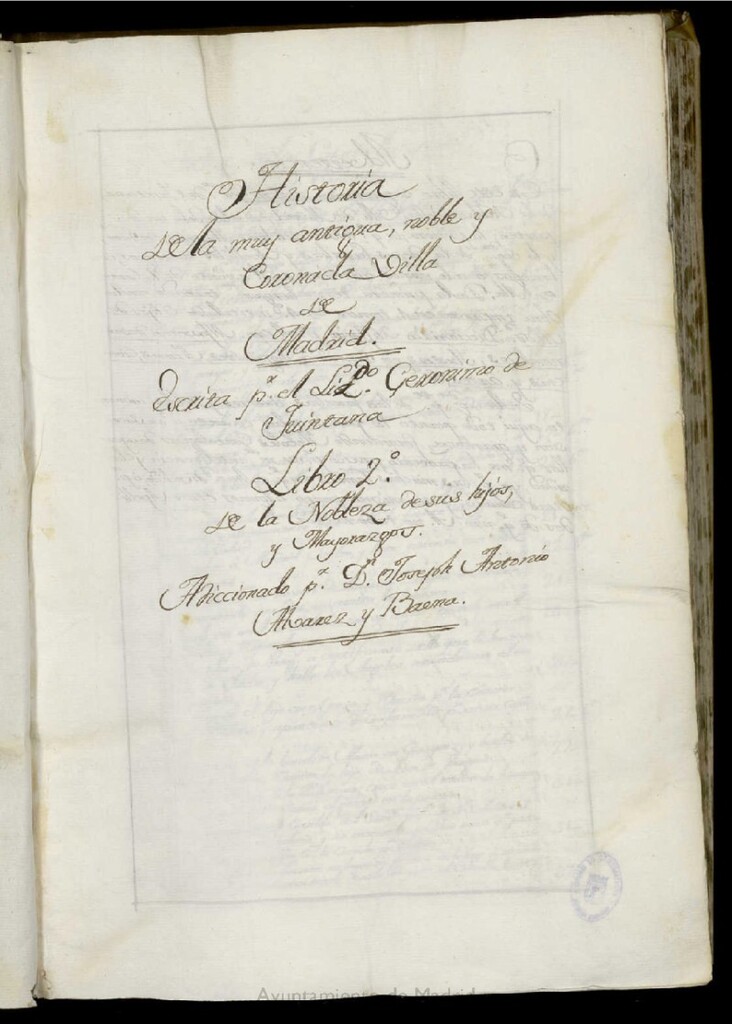 Historia
de la muy antigua, noble y
Coronada Villa
de
Madrid.
Escrita p.r el Liz.do Geronimo de
Quintana
Libro 2.º
de la Nobleza de sus hijos,
y Mayorazgos.
Adiccionado p.r D.n Joseph Antonio
Alvarez y Baena.
Ayuntamiento de Madrid